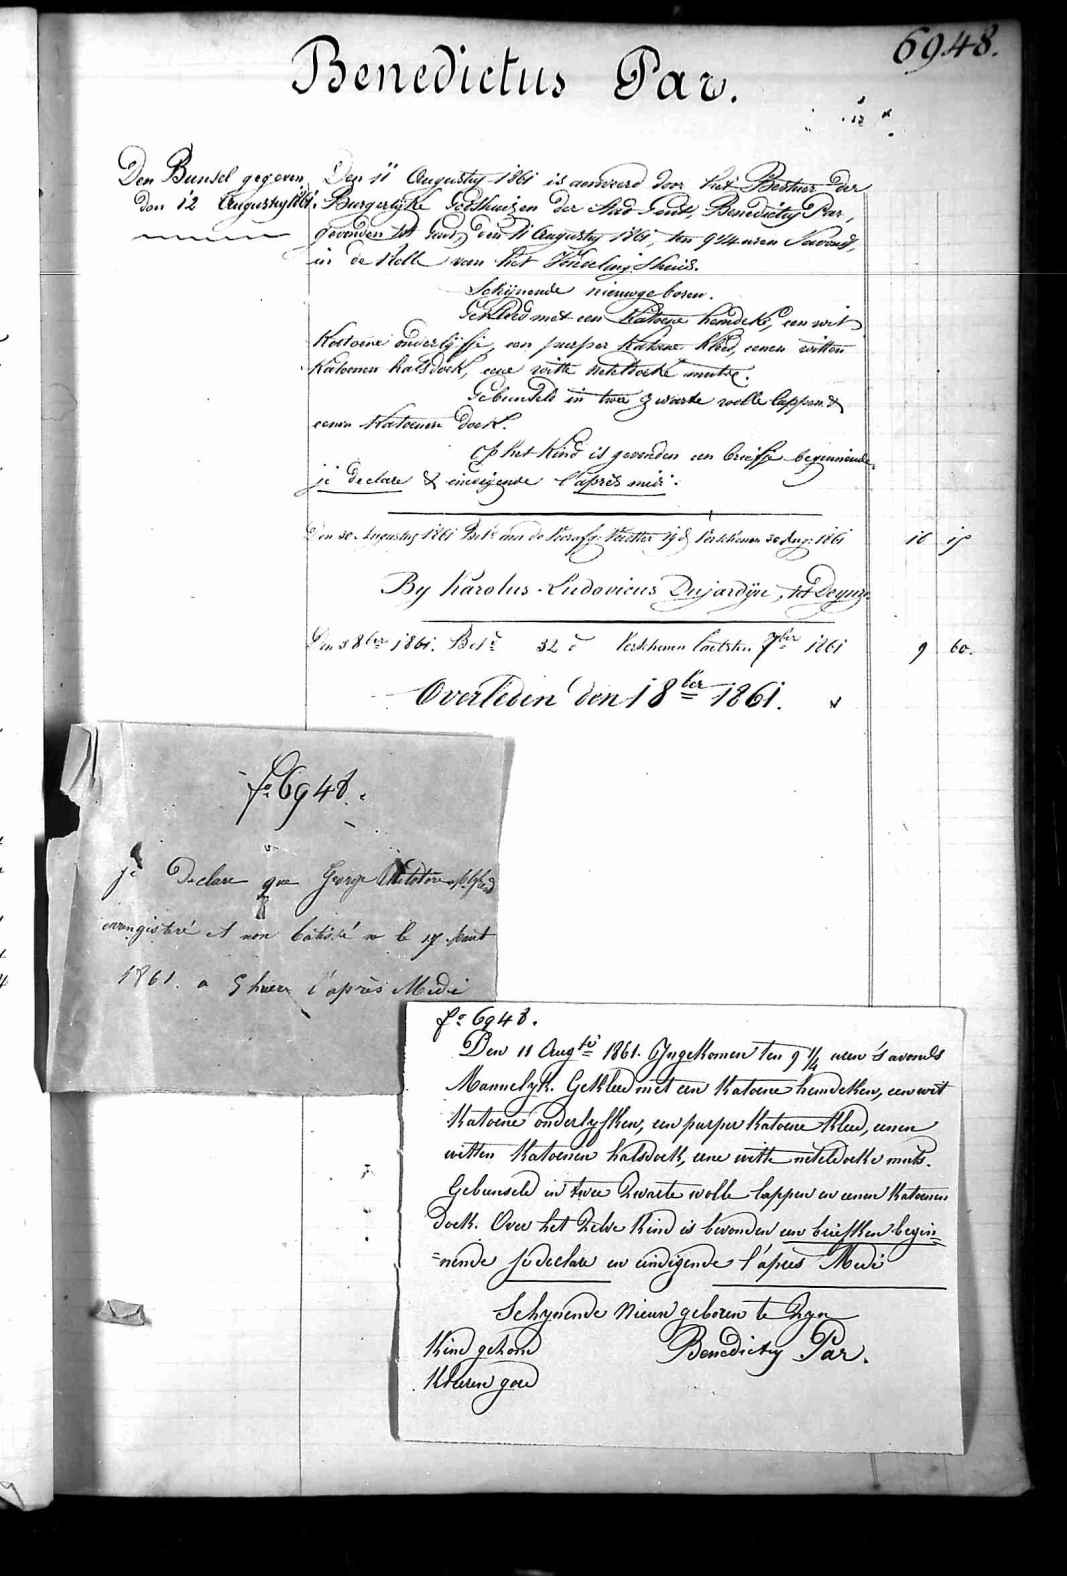 6948.
Benedictus Par.
Den Bunsel gegeven
den 12 Augusty 1861.
Den 11 Augusty 1861 is aenveerd door het Bestuer der
Burgerlijke Godshuizen der Stad Gent, Benedictus Par,
gevonden tot Gent, den 11 Augusty 1861, ten 9 1/4 uren S'avonds,
in de Rolle van het Vondelingshuis.
Schijnende nieuwgeboren.
Gekleed met een Katoene hemdeke, een wit
Kattoene onderlijfje, een purper Katoene kleed, eenen witten
Katoenen halsdoek, eene witte neteldoeke mutse.
Gebunseld in twee zwarte wolle lappen &
eenen Katoenen doek.
Op het Kind is gevonden een briefje beginnende
je declare & eindigende l'après midi.
Den 30 Augusty 1861 Bet. aen de Verschenen 30 Aug. 1861 16 15
By Karolus-Ludovicus Dujardijn, tot Deynze
Den 3 8ber 1861. Bet. 32 d Verschenen laetsten 7ber 1861 9 60.
Overleden den 18 1861.
fo. 6948.
je Declare que George
enregistré et non batisé né le 11
1861. a 5 heure l'après Medi
fo. 6948.
Den 11 Augti 1861. Ingekomen ten 9 1/4 uren s'avonds
Mannelyk. Gekleed met een Katoene hemdeken, een wit
Katoene onderlyfken, een purper Katoene kleed, eenen
witten Katoenen halsdoek, eene witte neteldoeke muts.
Gebunseld in twee Zwarte wolle lappen en eenen Katoenen
doek. Over het Zelve Kind is bevonden een briefken begin=
=nende je declare en eindigende l'après Medi
Schynende Nieuw geboren te Zyn
Kind gezond Benedictus Par.
Kleeren goed